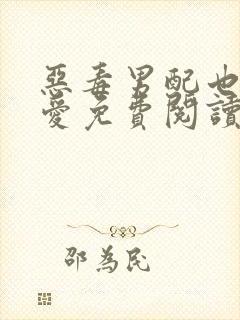 惡毒男配也
愛免費閱讀
邵為民